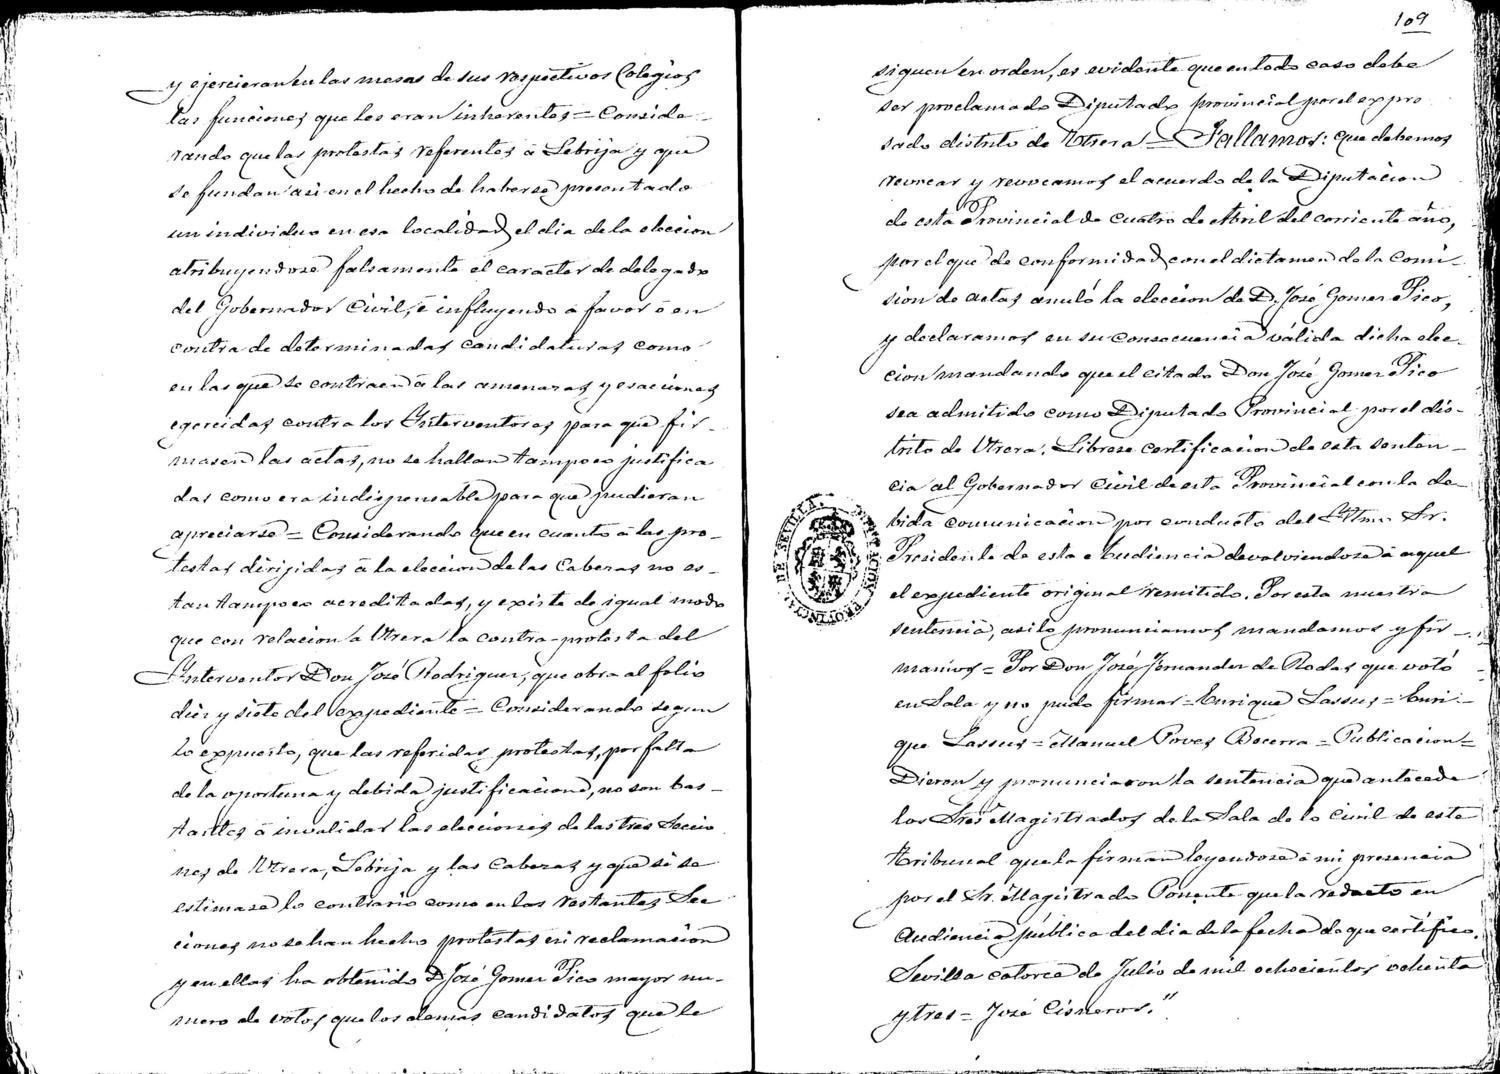 y ejercieran en las mesas de sus respectivos Colegios
las funciones que les eran inherentes = Conside-
rando que las protestas referentes á Lebrija y que
se fundan asi en el hecho de haberse presentado
un individuo en esa localidad el dia de la eleccion
atribuyendose falsamente el caracter de delegado
del Gobernador Civil, é influyendo á favor ó en
contra de determinadas candidaturas como
en las que se contraen á las amenazas y esaciones
egercidas contra los Interventores para que fir-
masen las actas, no se hallan tampoco justifica
das como era indispensable para que pudieran
apreciarse = Considerando que en cuanto á las pro-
testas dirijidas á la eleccion de las Cabezas no es-
tan tampoco acreditadas, y existe de igual modo
que con relacion á Utrera la contra-protesta del
Interventor Don José Rodriguez, que obra al folio
diez y siete del expediente = Considerando segun
lo expuesto, que las referidas protestas, por falta
de la oportuna y debida justificacion, no son bas-
tantes á invalidar las elecciones de las tres Seccio
nes de Utrera, Lebrija y las Cabezas y que si se
estimase lo contrario como en las restantes Sec
ciones no se han hecho protestas ni reclamacion
y en ellas ha obtenido D. José Gomez Pico mayor nu-
mero de votos que los demas candidatos que le
109
siguen en orden, es evidente que en todo caso debe
ser proclamado Diputado provincial por el expre
sado distrito de Utrera = Fallamos: que debemos
revocar y revocamos el acuerdo de la Diputacion
de esta Provincial de cuatro de Abril del corriente año,
por el que de conformidad con el dictamen de la Comi-
sion de actas anuló la eleccion de D. José Gomez Pico,
y declaramos en su consecuencia válida dicha elec-
cion mandando que el citado Don José Gomez Pico
sea admitido como Diputado Provincial por el dis-
trito de Utrera. Librese certificacion de esta senten-
cia al Gobernador Civil de esta Provincial con la de-
bida comunicacion por conducto del Iltmo. Sr.
Presidente de esta Audiencia devolviendose á aquel
el expediente original remitido. Por esta nuestra
sentencia, asi lo pronunciamos mandamos y fir-
mamos = Por Don José Fernandez de Rodas que votó
en Sala y no pudo firmar = Enrique Lassus = Enri-
que Lassus = Manuel Poves Becerra = Publicacion =
Dieron y pronunciaron la sentencia que antecede
los Sres. Magistrados de la Sala de lo Civil de este
Tribunal que la firman leyendose á mi presencia
por el Sr. Magistrado Ponente que la redacto en
Audiencia pública del dia de la fecha de que certifico.
Sevilla catorce de Julio de mil ochocientos ochenta
y tres = José Cisneros."
DIPUTACION PROVINCIAL DE SEVILLA.